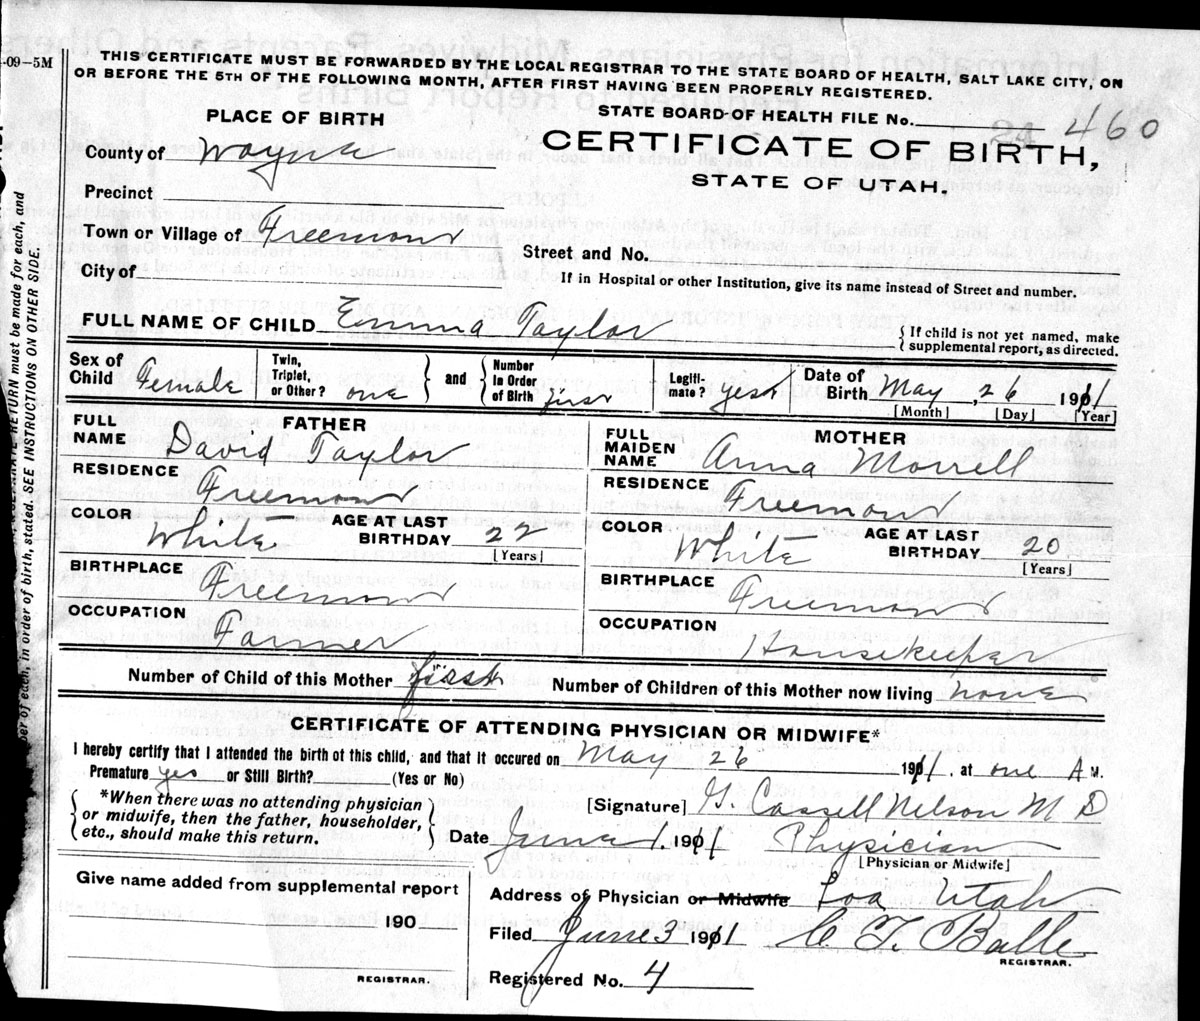 -09-5M
THIS CERTIFICATE MUST BE FORWARDED BY THE LOCAL REGISTRAR TO THE STATE BOARD OF HEALTH, SALT LAKE CITY, ON
OR BEFORE THE 5TH OF THE FOLLOWING MONTH, AFTER FIRST HAVING BEEN PROPERLY REGISTERED.
STATE BOARD OF HEALTH FILE No. 460
PLACE OF BIRTH
CERTIFICATE OF BIRTH,
STATE OF UTAH.
County of Wayne
Precinct
Town or Village of Freemont
Street and No.
City of
If in Hospital or other Institution, give its name instead of Street and number.
FULL NAME OF CHILD Emma Taylor
{ If child is not yet named, make supplemental report, as directed.
Sex of Child Female Twin, Triplet, or Other? one } and { Number in Order of Birth first Legiti- mate? yes Date of Birth May, 26 1911
[Month] [Day] [Year]
FATHER
FULL NAME David Taylor
RESIDENCE Freemont
COLOR White AGE AT LAST BIRTHDAY 22 [Years]
BIRTHPLACE Freemont
OCCUPATION Farmer
MOTHER
FULL MAIDEN NAME Anna Morrell
RESIDENCE Freemont
COLOR White AGE AT LAST BIRTHDAY 20 [Years]
BIRTHPLACE Freemont
OCCUPATION Housekeeper
Number of Child of this Mother first Number of Children of this Mother now living none
CERTIFICATE OF ATTENDING PHYSICIAN OR MIDWIFE*
I hereby certify that I attended the birth of this child, and that it occured on May 26 1911, at one A M.
Premature yes or Still Birth? (Yes or No)
{ *When there was no attending physician
or midwife, then the father, householder,
etc., should make this return. }
[Signature] Nelson M D
Date June 1, 1911 Physician
[Physician or Midwife]
Give name added from supplemental report
190
REGISTRAR.
Address of Physician or Midwife Loa Utah
Filed June 3 1911 C. T. Balle
REGISTRAR.
Registered No. 4
RETURN must be made for each, and
per of each, in order of birth, stated. SEE INSTRUCTIONS ON OTHER SIDE.